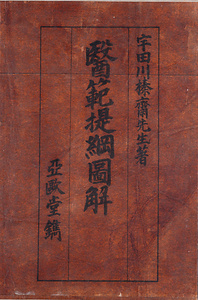 宇田川榛齋先生著
醫範提綱圖解
亞歐堂鐫